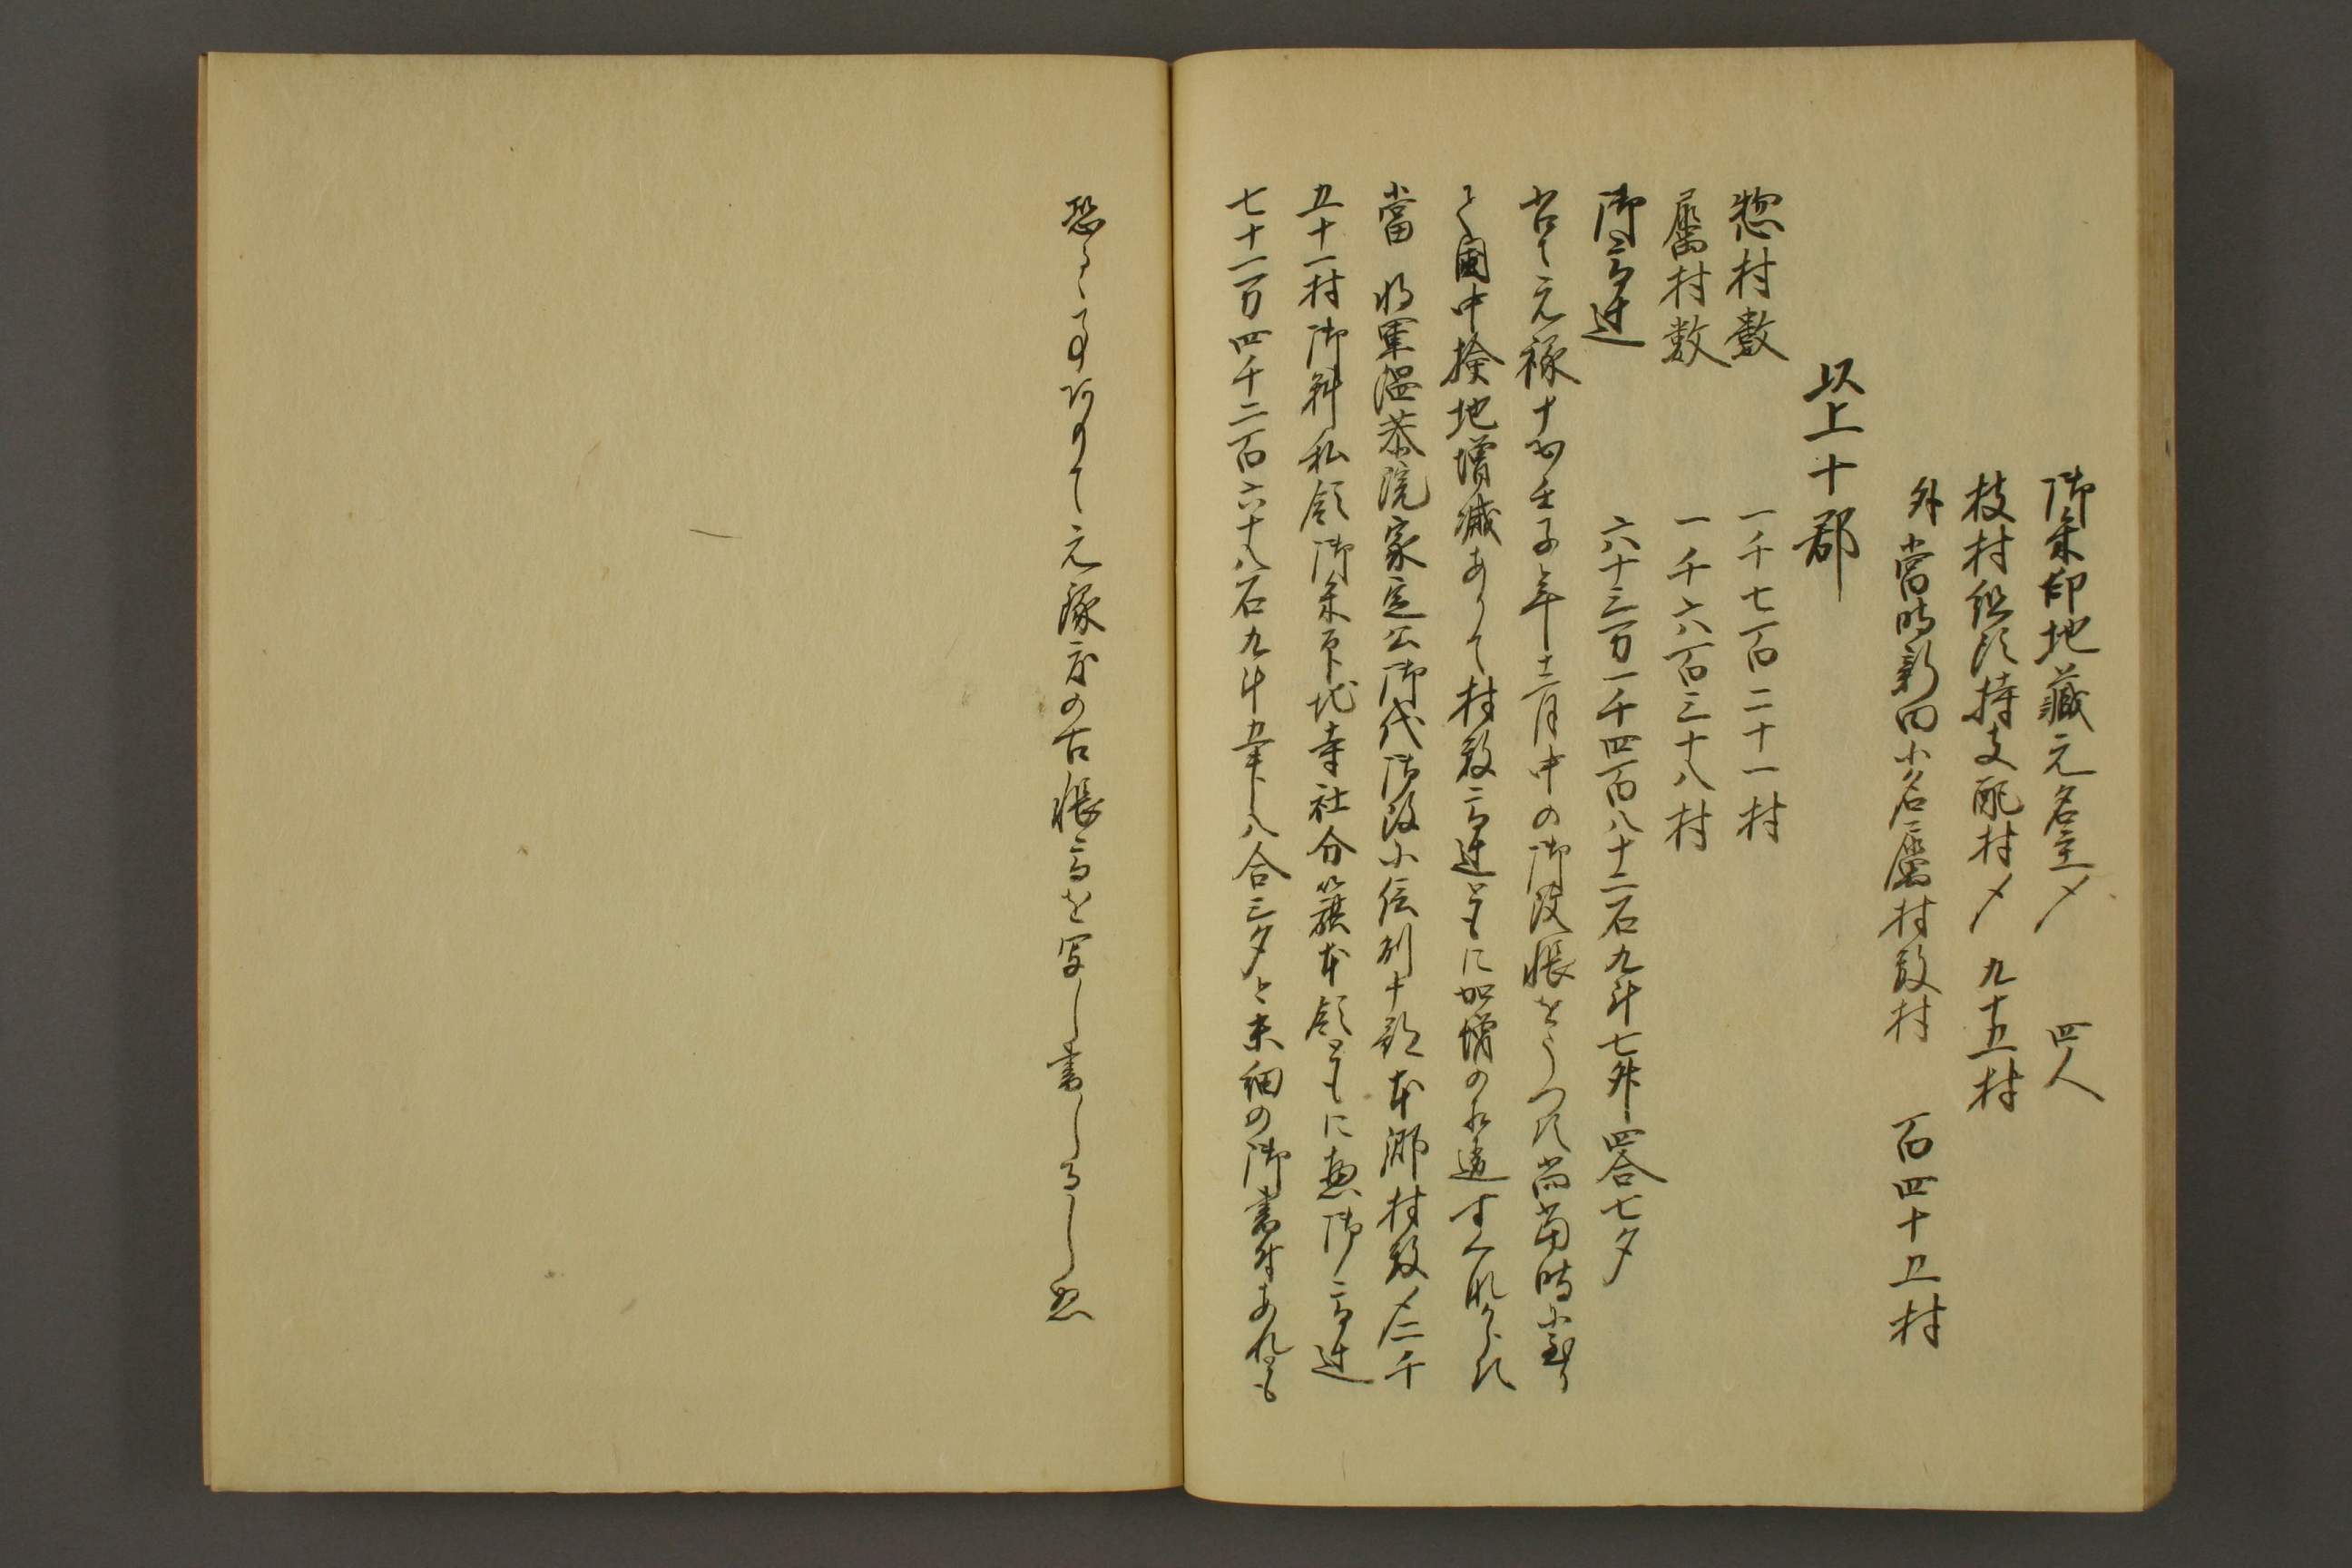 御朱印地蔵元名主〆　四人
枝村組頭持支配村〆　九十五村
外当時新田小名属村数村　百四十五村
以上十郡
惣村数　一千七百二十一村
属村数　一千六百三十八村
御高辻　六十三万一千四百八十二石九斗七升四合七夕
右は元禄十五壬午年十二月中の御改帳をうつす尚当時に至り
て国中検地増減ありて村数高辻ともに加増の相違すくなからす
当　将軍温恭院家定公御代御改小信州十郡本郷村数〆二千
五十一村御料私領御朱印地寺社分籏本領ともに惣御高辻
七十一万四千二百六十八石九斗五升八合三夕と末細の御書付あれとも
恐るゝ事ありて元禄度の古帳高を写し書しるし畢